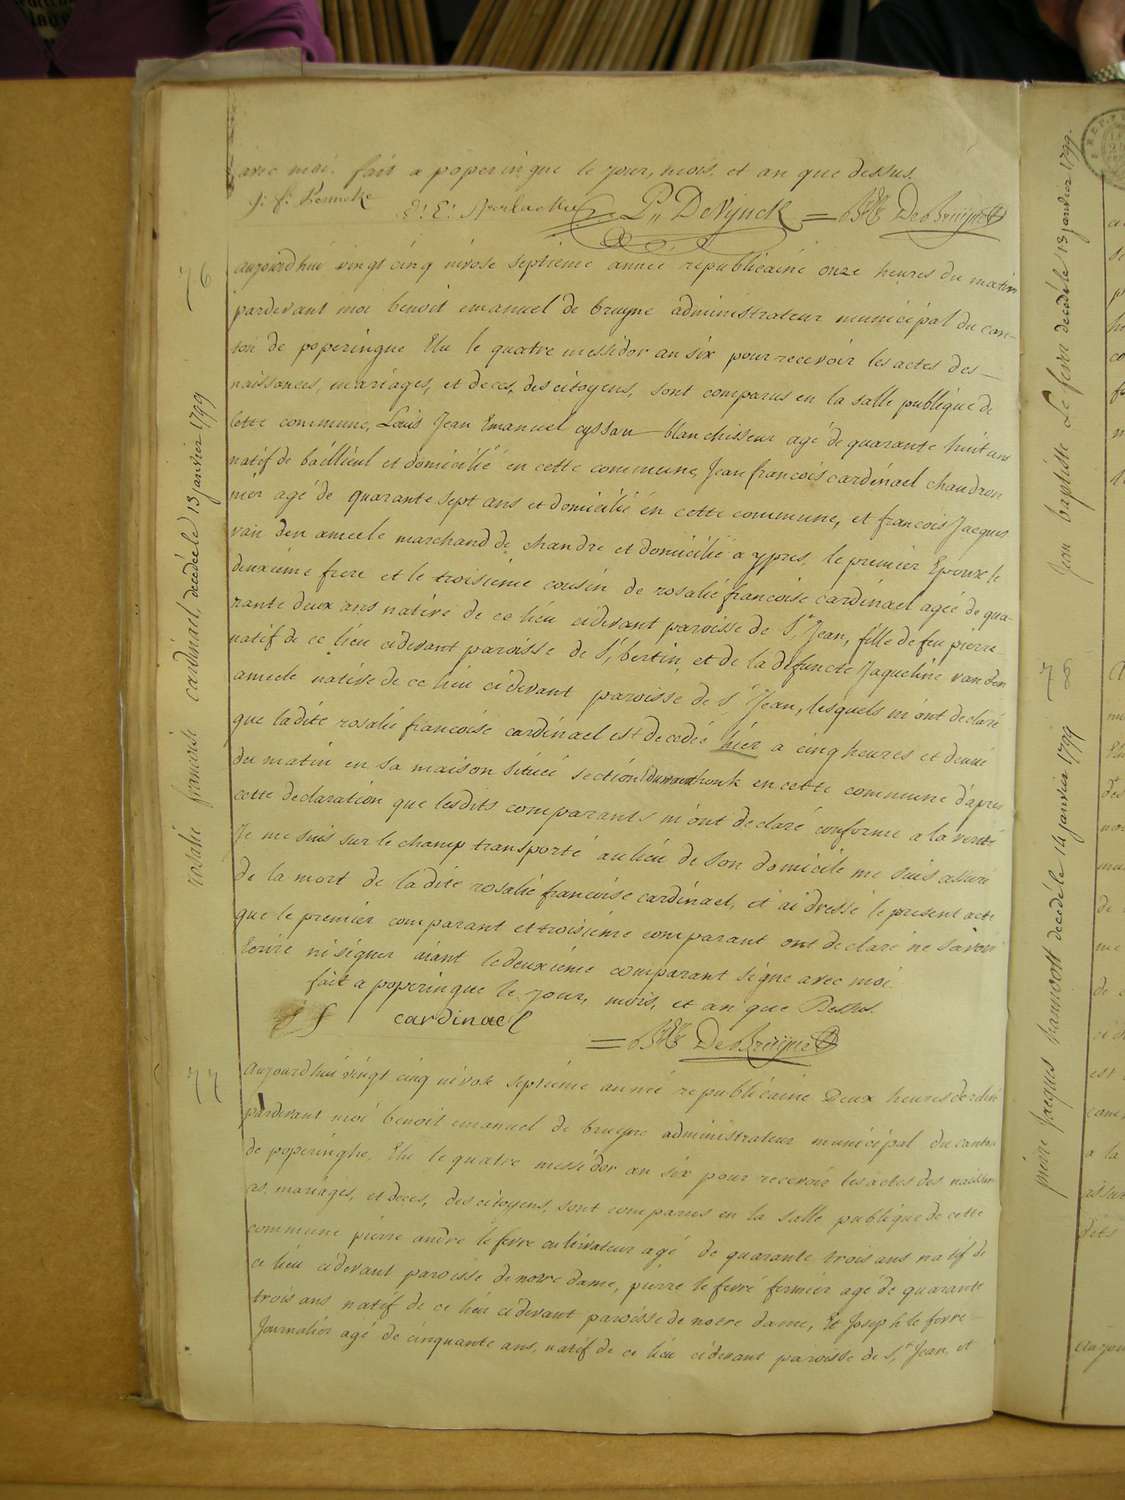 avec moi. fait a poperingue le jour, mois, et an que dessus.
P,, DeNynck = DeBruyne
76
aujourd'hui vingt cinq nivose septieme année republicaine onze heures du matin
pardevant moi benoit emanuel de bruyne administrateur municipal du can-
ton de poperingue Elu le quatre messidor an six pour recevoir les actes des
naissances, mariages, et deces, des citoyens, sont comparus en la salle publique de
cette commune, Louis Jean Emanuel cyssau blanchisseur agé de quarante huit ans
natif de baillieul et domicilié en cette commune, Jean francois cardinael chaudron
nier agé de quarante sept ans et domicilié en cette commune, et francois Jacques
van den ameele marchand de chandre et domicilié a ypres, le premier Epoux le
deuxieme frere et le troisieme cousin de rosalie francoise cardinael agée de qua-
rante deux ans native de ce lieu cidevant paroisse de St Jean, fille de feu pierre
natif de ce lieu cidevant paroisse de St bertin, et de la defuncte Jaqueline van den
ameele native de ce lieu cidevant paroisse de St Jean, lesquels m'ont declaré
que ladite rosalie francoise cardinael est decedée hier a cinq heures et demie
du matin en sa maison située section en cette commune d'apres
cette declaration que lesdits comparants m'ont declaré conforme a la verité
Je me suis sur le champ transporté au lieu de son domicile me suis assuré
de la mort de ladite rosalie francoise cardinael, et ai dressé le present acte
que le premier comparant et troisieme comparant ont declaré ne savoir
Ecrire ni signer aiant le deuxieme comparant signe avec moi.
fait a poperingue le jour, mois, et an que Dessus.
j f cardinael
= DeBruyne
77
aujourd'hui vingt cinq nivose septieme année republicaine Deux heures de relevé
pardevant moi benoit emanuel de bruyne administrateur municipal du canton
de poperinghe, Elu le quatre messidor an six pour recevoir les actes des naissan
ces, mariages, et deces, des citoyens, sont comparus en la salle publique de cette
commune pierre andré le fevre cultivateur agé de quarante trois ans natif de
ce lieu cidevant paroisse de notre dame, pierre le fevre fermier agé de quarante
trois ans natif de ce lieu cidevant paroisse de notre dame, et Joseph le fevre
Journalier agé de cinquante ans, natif de ce lieu cidevant paroisse de St Jean, et
rosalie francoise cardinael, decedée le 13 janvier 1799
Jean baptiste Le fevre decedé le 13 janvier 1799.
78
pierre Jacques decedé le 14 janvier 1799